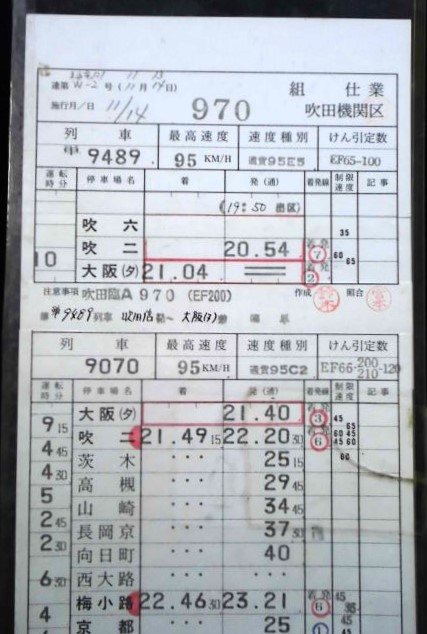 達第W-2号(11月14日)
施行月/日 11/14
970
組 仕業
吹田機関区
列車 最高速度 速度種別 けん引定数
単 9489 95 KM/H 通貨95E5 EF65-100
運転時分 停車場名 着 発(通) 着発線 制限速度 記事
(19:50 出区)
吹六 35
10 吹二 20.54 着発 7 60 65
大阪(タ) 21.04 着発 2
注意事項 吹田臨A970 (EF200) 作成 照合
単9489列車 大阪(タ)
列車 最高速度 速度種別 けん引定数
9070 95 KM/H 通貨95C2 EF66-200 210-120
運転時分 停車場名 着 発(通) 着発線 制限速度 記事
大阪(タ) 21.40 着発 3 45
9 15 吹二 21.49 15 22.20 30 着発 6 65 60 45 45 60
4 45 茨木 ・・・ 25 15 60
4 30 高槻 ・・・ 29 45
5 山崎 ・・・ 34 45
2 45 長岡京 ・・・ 37 30
2 30 向日町 ・・・ 40
西大路 ・・・
6 30 梅小路 22.46 30 23.21 着発 6 45 35
4 京都 ・・・ 25 1 45